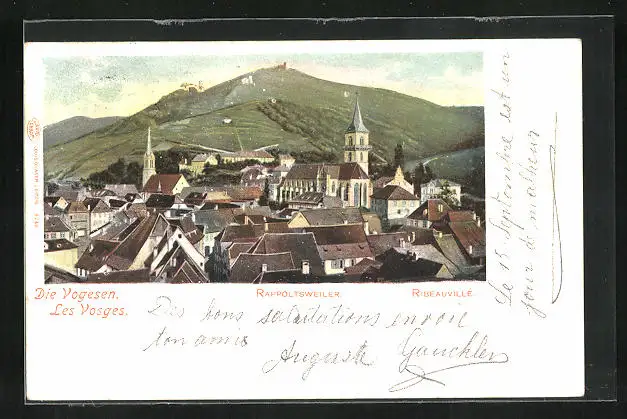 Die Vogesen.
Les Vosges.
RAPPOLTSWEILER.
RIBEAUVILLÉ.
Des bons salutations envoie
ton amis
Auguste Gauckler
Le 15 Septembre est un
jour de malheur